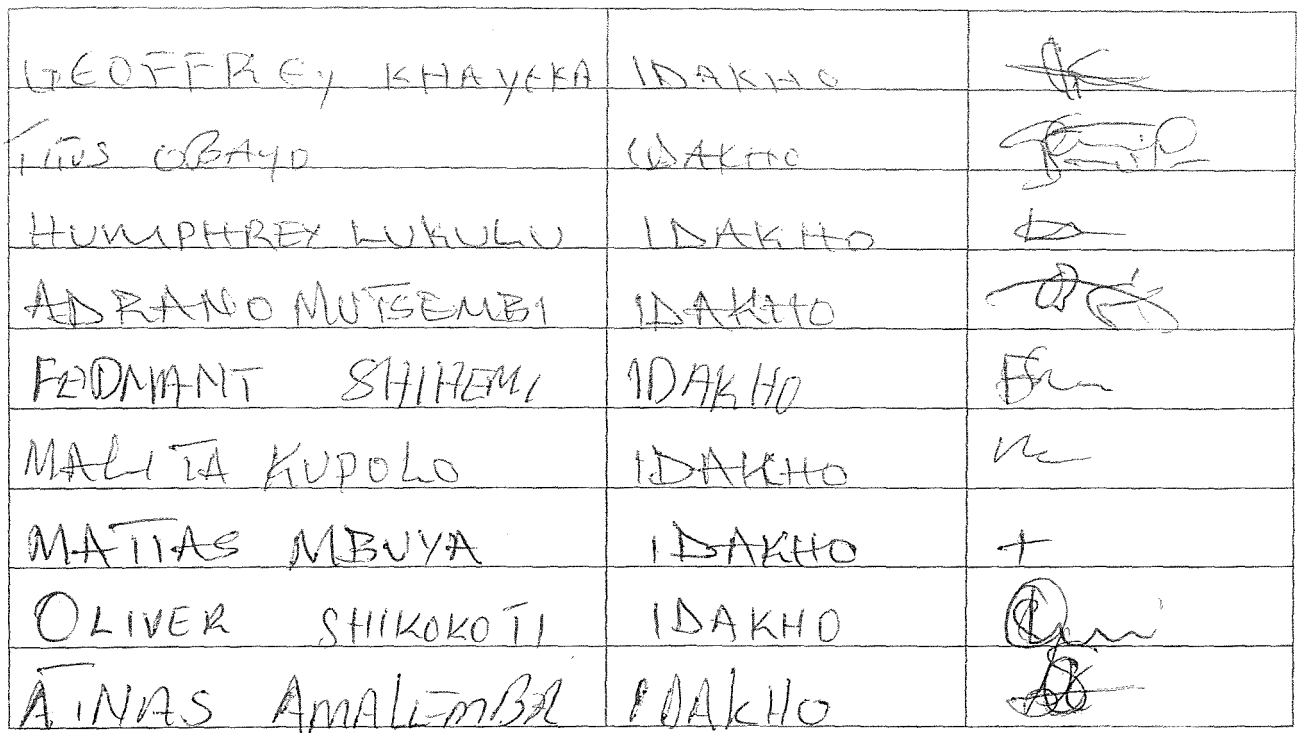 GEOFFREY KHAYEKA IDAKHO
TITUS OBAYO IDAKHO
HUMPHREY LUKULU IDAKHO
ADRANO MUTSEMBI IDAKHO
SHIHEMI IDAKHO
MALITA KUPOLO IDAKHO
MATIAS MBUYA IDAKHO +
OLIVER SHIKOKOTI IDAKHO
AINAS AMALEMBA IDAKHO